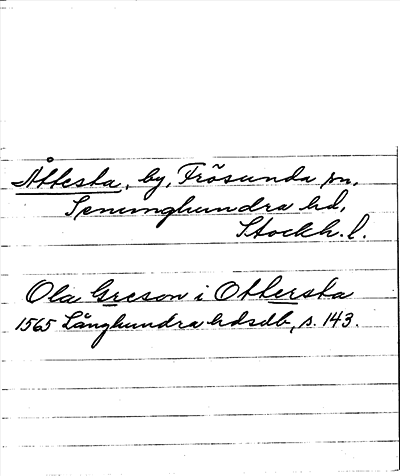 Åttesta, by, Frösunda sn,
Seminghundra hd,
Stockh. l.
Ola Greson i Ottersta
1565 Långhundra hdsdb, s. 143.